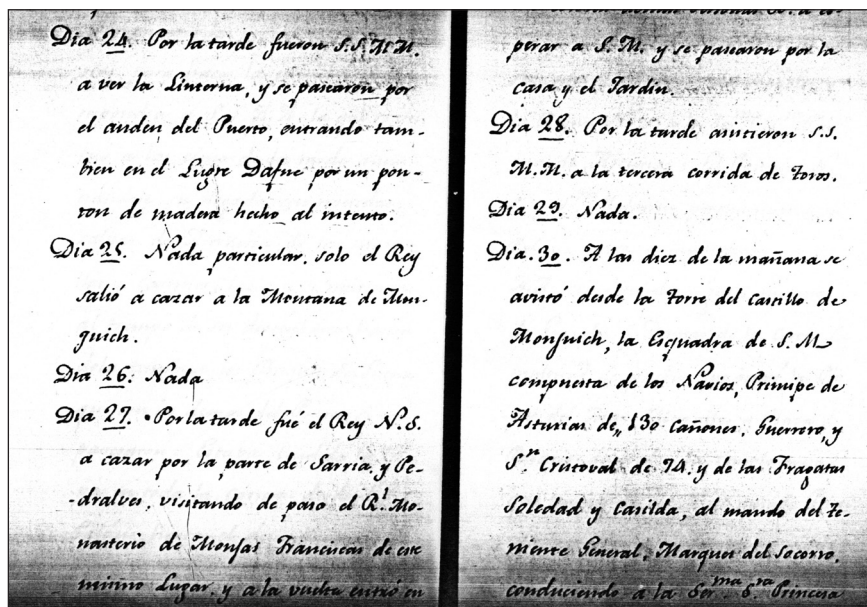 Dia 24. Por la tarde fueron S.S. M.M.
a ver la Linterna, y se pasearon por
el anden del Puerto, entrando tam-
bien en el Lugre Dafne por un pon-
ton de madera hecho al intento.
Dia 25. Nada particular, solo el Rey
salió a cazar a la Montana de Mon-
guich.
Dia 26. Nada
Dia 27. Por la tarde fué el Rey N.S.
a cazar por la parte de Sarria, y Pe-
-dralves, visitando de paso el R.l Mo-
nasterio de Monjas Franciscas de este
mismo Lugar, y a la vuelta entró en
perar a S.M. y se pasearon por la
casa y el Jardin.
Dia 28. Por la tarde asistieron S.S.
M.M. a la tercera corrida de Toros.
Dia 29. Nada.
Dia. 30. A las diez de la mañana se
avistó desde la Torre del castillo de
Monjuich, la Esquadra de S.M.
compuesta de los Navios, Principe de
Asturias de,, 130 cañones, Guerrero, y
S.n Cristoval de 74. y de las Fragatas
Soledad y Casilda, al mando del Te-
niente General, Marques del Socorro,
conduciendo a la Ser.ma S.ra Princesa